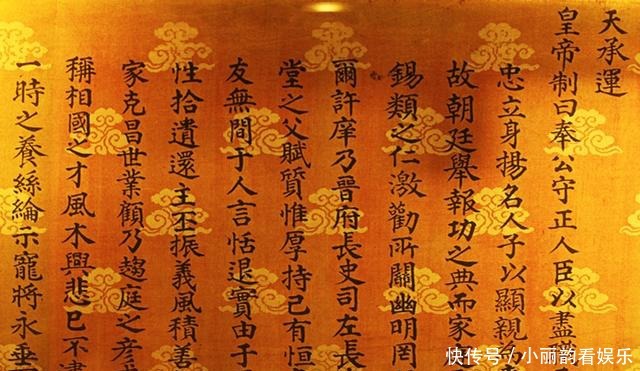 天承運
皇帝制曰奉公守正人臣以盡
忠立身揚名人子以顯親
故朝廷舉報功之典而家
錫類之仁激勸所關幽明罔
爾許庠乃晉府長史司左長
堂之父賦質惟厚持己有恒
友無間于人言恬退實由于
性拾遺還主丕振義風積善
家克昌世業顧乃趨庭之彥
稱相國之才風木興悲已不
一時之養絲綸示寵將永垂
快传号/小丽韵看娱乐